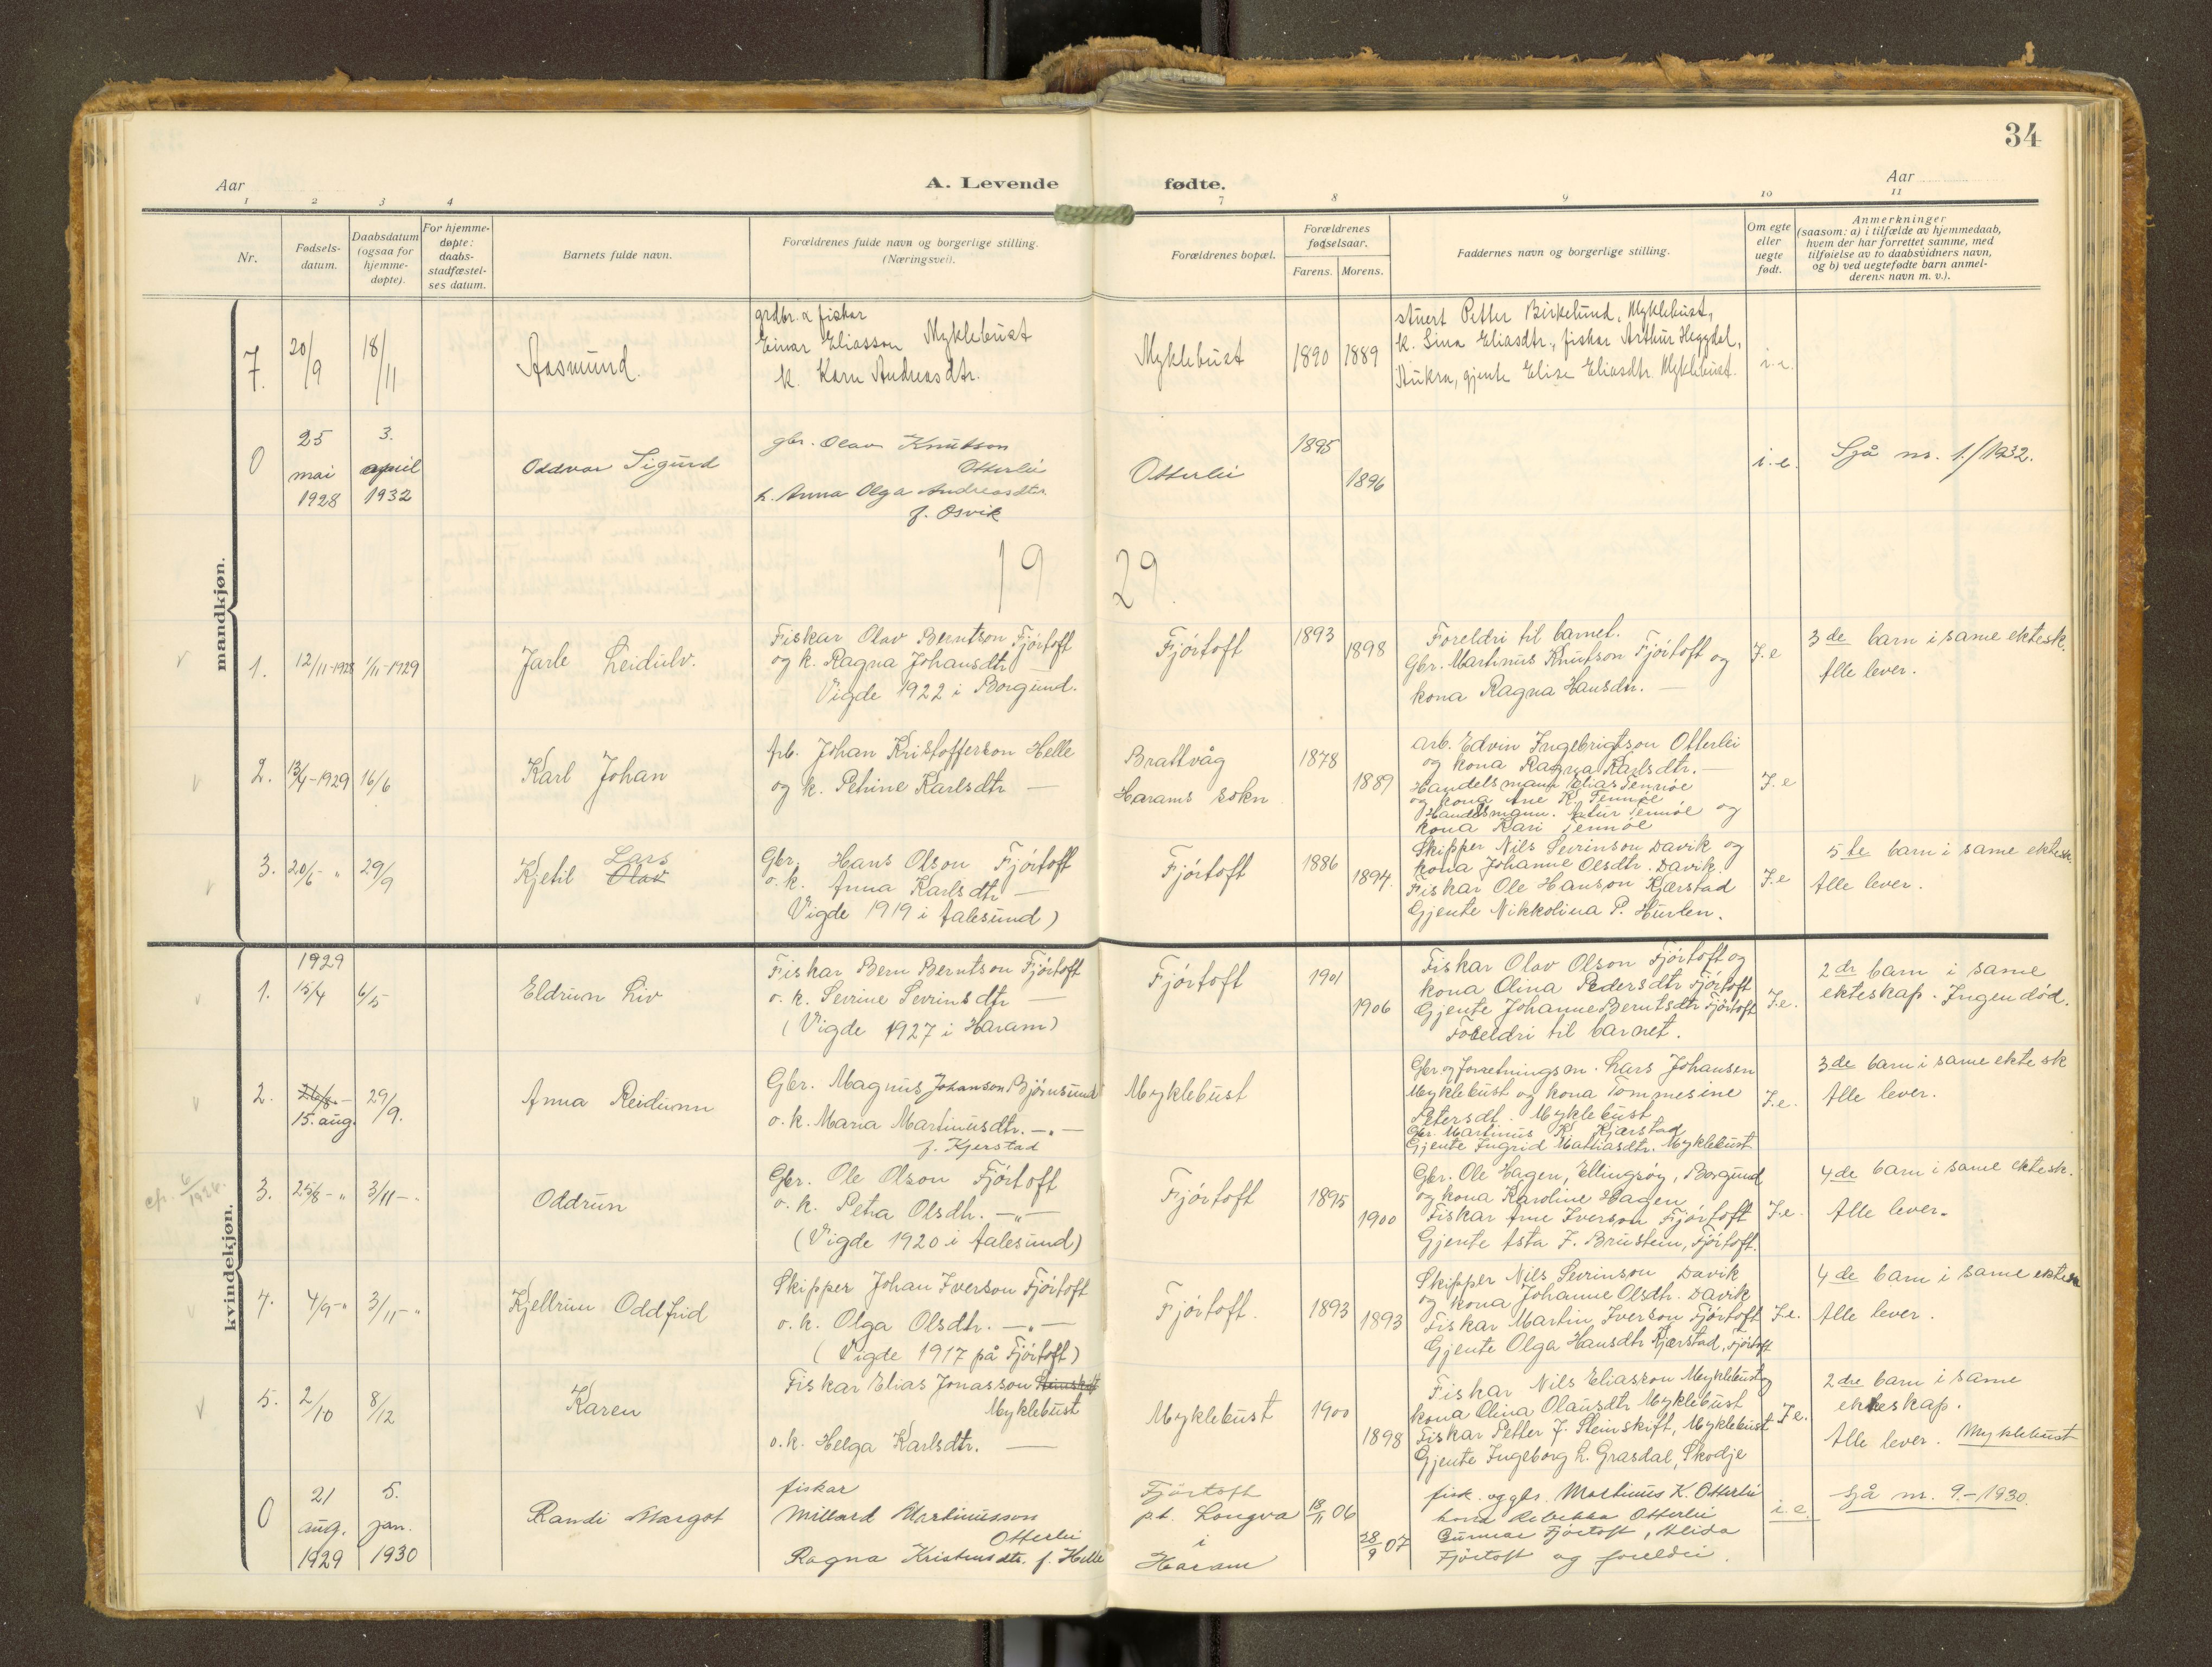 34
Aar
A. Levende
fødte.
Aar
1 2 3 4 7 8 9 10 11
Nr.
Fødsels-
datum.
Daabsdatum
(ogsaa for
hjemme-
døpte).
For hjemme-
døpte:
daabs-
stadfæstel-
ses datum.
Barnets fulde navn.
Forældrenes fulde navn og borgerlige stilling.
(Næringsvei).
Forældrenes bopæl.
Forældrenes
fødselsaar.
Farens. Morens.
Faddernes navn og borgerlige stilling.
Om egte
eller
uegte
født.
Anmerkninger
(saasom: a) i tilfælde av hjemmedaab,
hvem der har forrettet samme, med
tilføielse av to daabsvidners navn,
og b) ved uegtefødte barn anmel-
derens navn m. v.).
mandkjøn.
7.
20/9
18/11
Aasmund.
grdbr. & fiskar
Einar Eliasson Myklebust
k. Karn Andreasdtr.
Myklebust
1890
1889
stuert Petter Birkelund, Myklebust,
k. Sina Eliasdtr., fiskar Arthur Heggdal,
Aukra, gjente Elise Eliasdtr. Myklebust.
i.e.
0
25
mai
1928
3.
april
1932
Oddvar Sigurd
gbr. Olav Knutson
Otterlei
k. Anna Olga Andreasdtr.
f. Osvik
Otterlei
1895
1896
i.e.
Sjå nr. 1/1932.
19 29
1.
12/11-1928
1/11-1929
Jarle Leidulv.
Fiskar Olav Berntson Fjörtoft
og k. Ragna Johansdtr —
Vigde 1922 i Borgund.
Fjörtoft
1893
1898
Foreldri til barnet.
Gbr. Martinus Knutson Fjörtoft og
kona Ragna Hansdtr. —
I.e
3de barn i same ektesk.
Alle lever.
2.
13/4-1929
16/6
Karl Johan
Arb. Johan Kristofferson Helle
og k. Petrine Karlsdtr —
Brattvåg
Harams sokn
1878
1889
Arb. Edvin Ingebrigtson Otterlei
og kona Ragna Karlsdtr. —
Handelsmann Elias Tennöe
og kona Ane K. Tennöe
Handelsmann. Artur Tennöe og
kona Kari Tennöe
I.e
3.
20/6- "
29/9
Kjetil Olav
Lars
Gbr. Hans Olson Fjörtoft
o.k. Anna Karlsdtr —
Vigde 1919 i Aalesund)
Fjörtoft
1886
1894.
Skipper Nils Sevrinson Davik og
kona Johanne Olsdtr. Davik.
Fiskar Ole Hanson Kjærstad
Gjente Nikkolina P. Hurlen.
I.e
5te barn i same ektesk.
Alle lever.
kvindekjøn.
1929
1.
15/4
6/5
Eldrun Liv
Fiskar Bern Berntson Fjörtoft
o.k. Sevrine Sevrinsdtr —
(Vigde 1927 i Haram)
Fjörtoft
1901
1906
Fiskar Olav Olson Fjörtoft og
kona Olina Pedersdtr Fjörtoft
Gjente Johanne Berntsdtr Fjörtoft
Foreldri til barnet.
I.e.
2dr barn i same
ekteskap. Ingen död.
2.
26/8. -
15. aug.
29/9.
Anna Reidunn
Gbr. Magnus Johanson Björnsund
o.k. Maria Martinusdtr. —"—
f. Kjerstad
Myklebust
Gbr og forretningsm. Lars Johansen
Myklebust og kona Tommesine
Petersdt. Myklebust
Gbr. Martinus K. Kjærstad
Gjente Ingrid Mattiasdtr. Myklebust
I.e.
3de barn i same ektesk
Alle lever.
cfr. 6/1926.
3.
25/8- "
3/11- "
Oddrun
Gbr. Ole Olson Fjörtoft
o.k. Petra Olsdtr. —"—
(Vigde 1920 i Aalesund)
Fjörtoft
1895
1900
Gbr. Ole Hagen, Ellingsøy, Borgund
og kona Karoline Hagen
Fiskar Arne Iverson Fjörtoft
Gjente Asta J. Brustein, Fjörtoft.
I.e.
4de barn i same ektesk.
Alle lever.
4.
4/9- "
3/11- "
Kjellrun Oddfrid
Skipper Johan Iverson Fjörtoft
o.k. Olga Olsdtr. —"—
(Vigde 1917 på Fjörtoft)
Fjörtoft.
1893
1893
Skipper Nils Sevrinson Davik
og kona Johanne Olsdtr. Davik
Fiskar Martin Iverson Fjörtoft
Gjente Olga Hansdtr Kjærstad, Fjörtoft
I.e.
4de barn i same ektesk
Alle lever.
5.
2/10
8/12
Karen
Fiskar Elias Jonasson Steinskift
Myklebust
o.k. Helga Karlsdtr. —
Myklebust
1900
1898
Fiskar Nils Eliasson Myklebust og
kona Olina Olausdtr Myklebust
Fiskar Petter J. Steinskift, Myklebust
Gjente Ingeborg L. Grasdal, Skodje
I.e.
2dre barn i same
ekteskap.
Alle lever. Myklebust
0
21
aug.
1929
5.
jan.
1930
Randi Margot
fiskar
Millard Martinusson
Otterlei
Ragna Kristensdtr. f. Helle
Fjörtoft
pt. Longva
i
Haram
18/11 06
28/9 07
fisk. og gbr. Martinus K. Otterlei
kona Rebekka Otterlei
Gunnar Fjörtoft, Alida
Fjörtoft og foreldri.
i.e.
Sjå nr. 9.-1930.